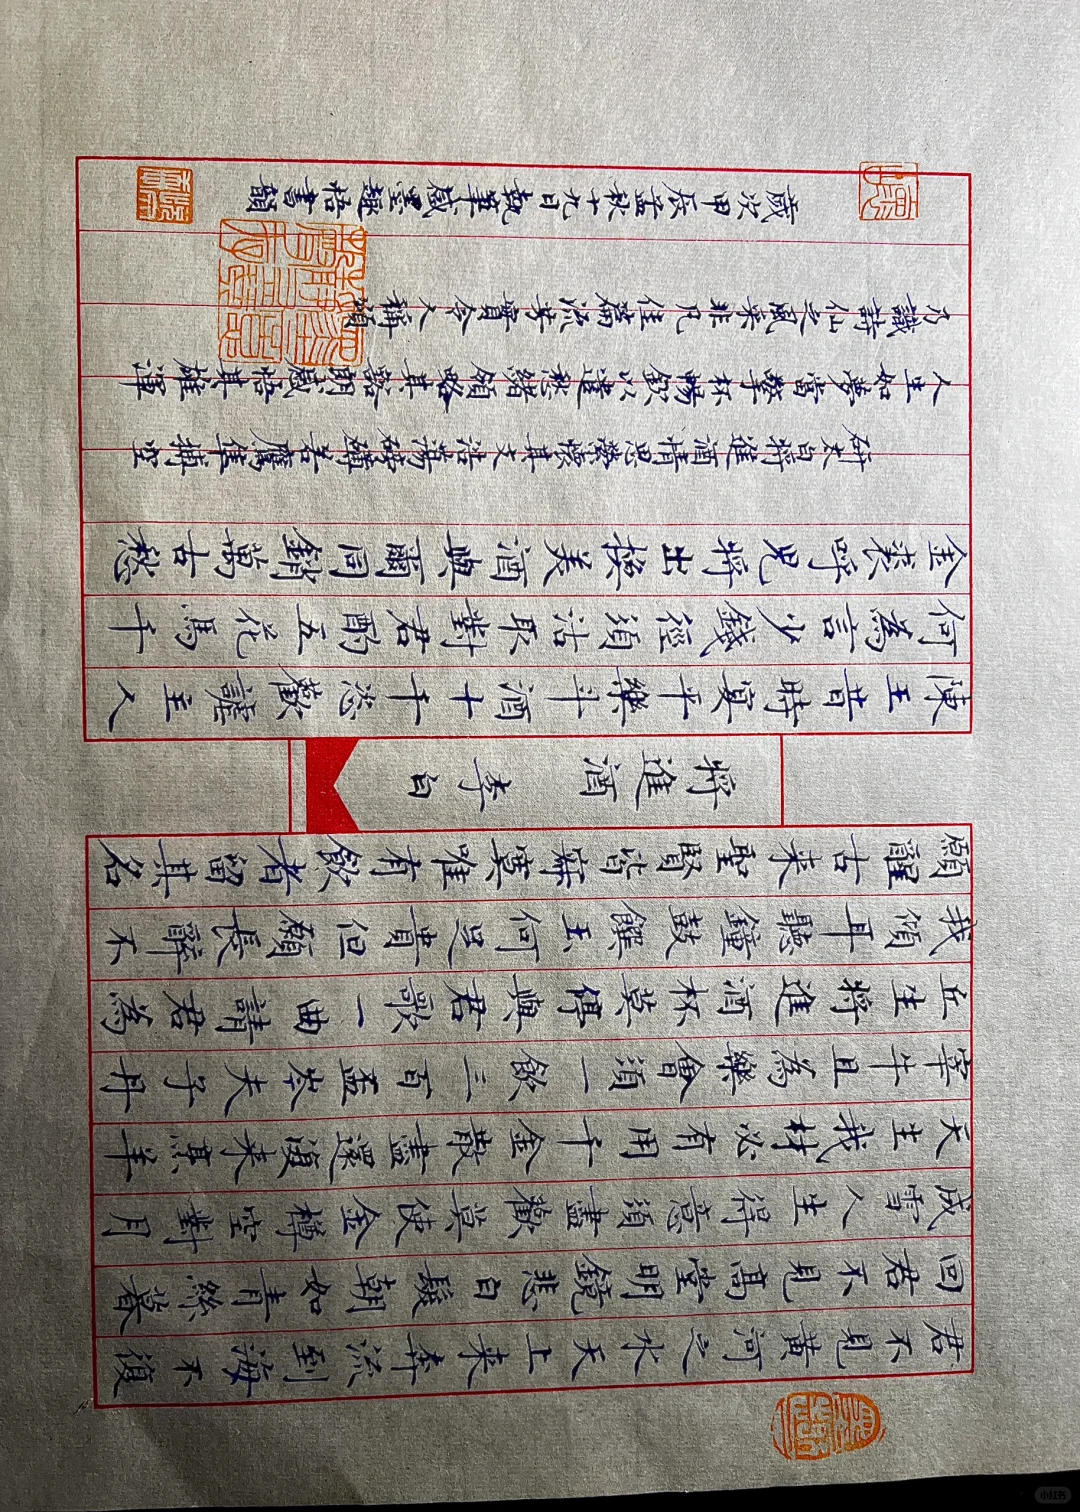 君不見黃河之水天上来奔流到海不復
回君不見高堂明鏡悲白髮朝如青絲暮
成雪人生得意須盡歡莫使金樽空對月
天生我材必有用千金散盡還復来烹羊
宰牛且為樂會須一飲三百盃岑夫子丹
丘生將進酒杯莫停與君歌一曲請君為
我傾耳聽鐘鼓饌玉何足貴但願長醉不
願醒古来聖賢皆寂寞唯有飲者留其名
將進酒 李白
陳王昔時宴平樂斗酒十千恣歡謔主人
何為言少錢徑須沽取對君酌五花馬千
金裘呼兒將出換美酒與爾同銷萬古愁
研太白將進酒情思縈懷其文浩蕩磅礴若鷹隼搏空
人生如夢當擎杯暢飲以遣愁緒領略其豁朗感悟其雄渾
乃識詩仙之風采非凡佳篇流芳實令人稱頌
歲次甲辰孟秋十九日執筆感墨趣悟書韻
小红书